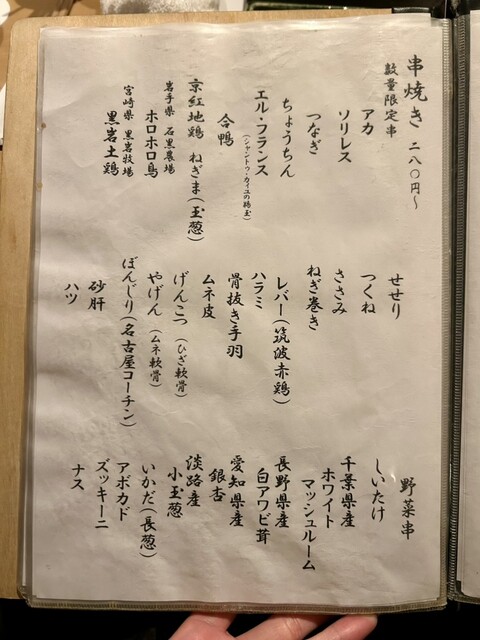 串焼き 二八〇円〜
数量限定串
アカ
ソリレス
つなぎ
ちょうちん
エル・フランス
(シャントゥ・カイユの鶉玉)
合鴨
京紅地鶏 ねぎま(玉葱)
岩手県 石黒農場
ホロホロ鳥
宮崎県 黒岩牧場
黒岩土鶏
せせり
つくね
ささみ
ねぎ巻き
レバー(筑波赤鶏)
ハラミ
骨抜き手羽
ムネ皮
げんこつ(ひざ軟骨)
やげん(ムネ軟骨)
ぼんじり(名古屋コーチン)
砂肝
ハツ
野菜串
しいたけ
千葉県産
ホワイト
マッシュルーム
長野県産
白アワビ茸
愛知県産
銀杏
淡路産
小玉葱
いかだ(長葱)
アボカド
ズッキーニ
ナス